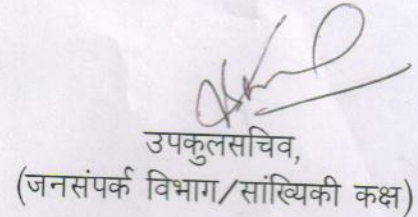 उपकुलसचिव,
(जनसंपर्क विभाग/सांख्यिकी कक्ष)